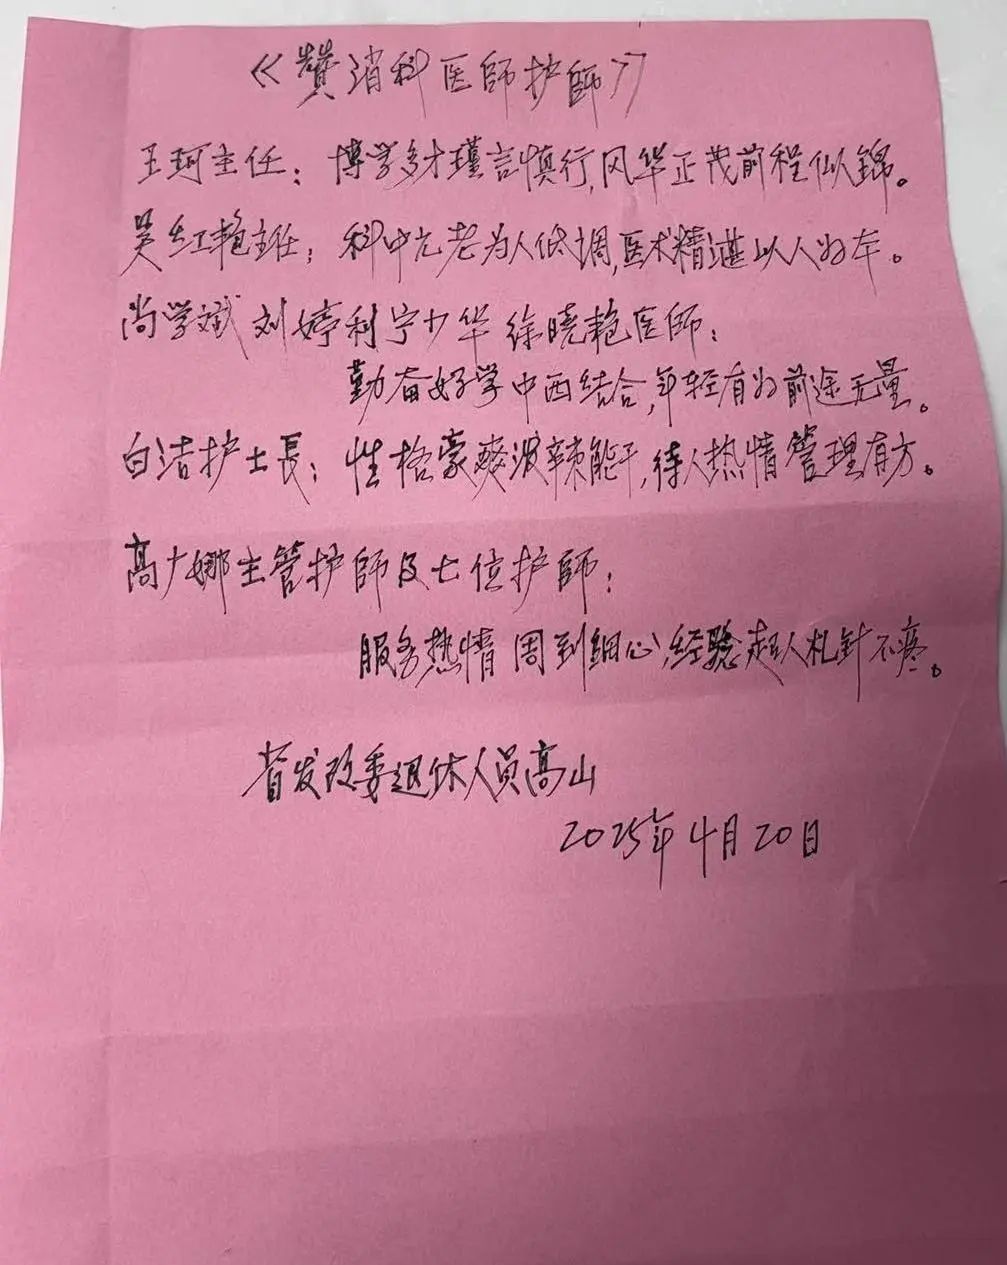 《赞消科医師护師》
王珂主任：博学多才瑾言慎行，风华正茂前程似錦。
吴红艳主任：科中元老为人低调，医术精湛以人为本。
尚学斌 刘婷利 宁少华 徐晓艳医師：
勤奋好学中西结合，年轻有为前途无量。
白洁护士長：性格豪爽泼辣能干，待人热情管理有方。
高广娜主管护師及七位护師：
服务热情周到細心，经验超人扎针不疼。
省发改委退休人员高山
2025年4月20日